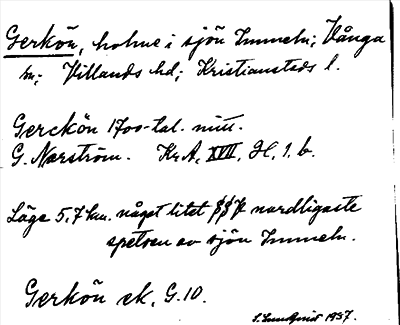 Gerkön, holme i sjön Immeln; Vånga
sn; Villands hd; Kristianstads l.
Gerckön 1700-tal. mitt.
G. Nærström. Kr.A. XVII, H, 1. b.
Läge 5,7 km. något litet nordligaste
spetsen av sjön Immeln.
Gerkön ek. G. 10.
1937.